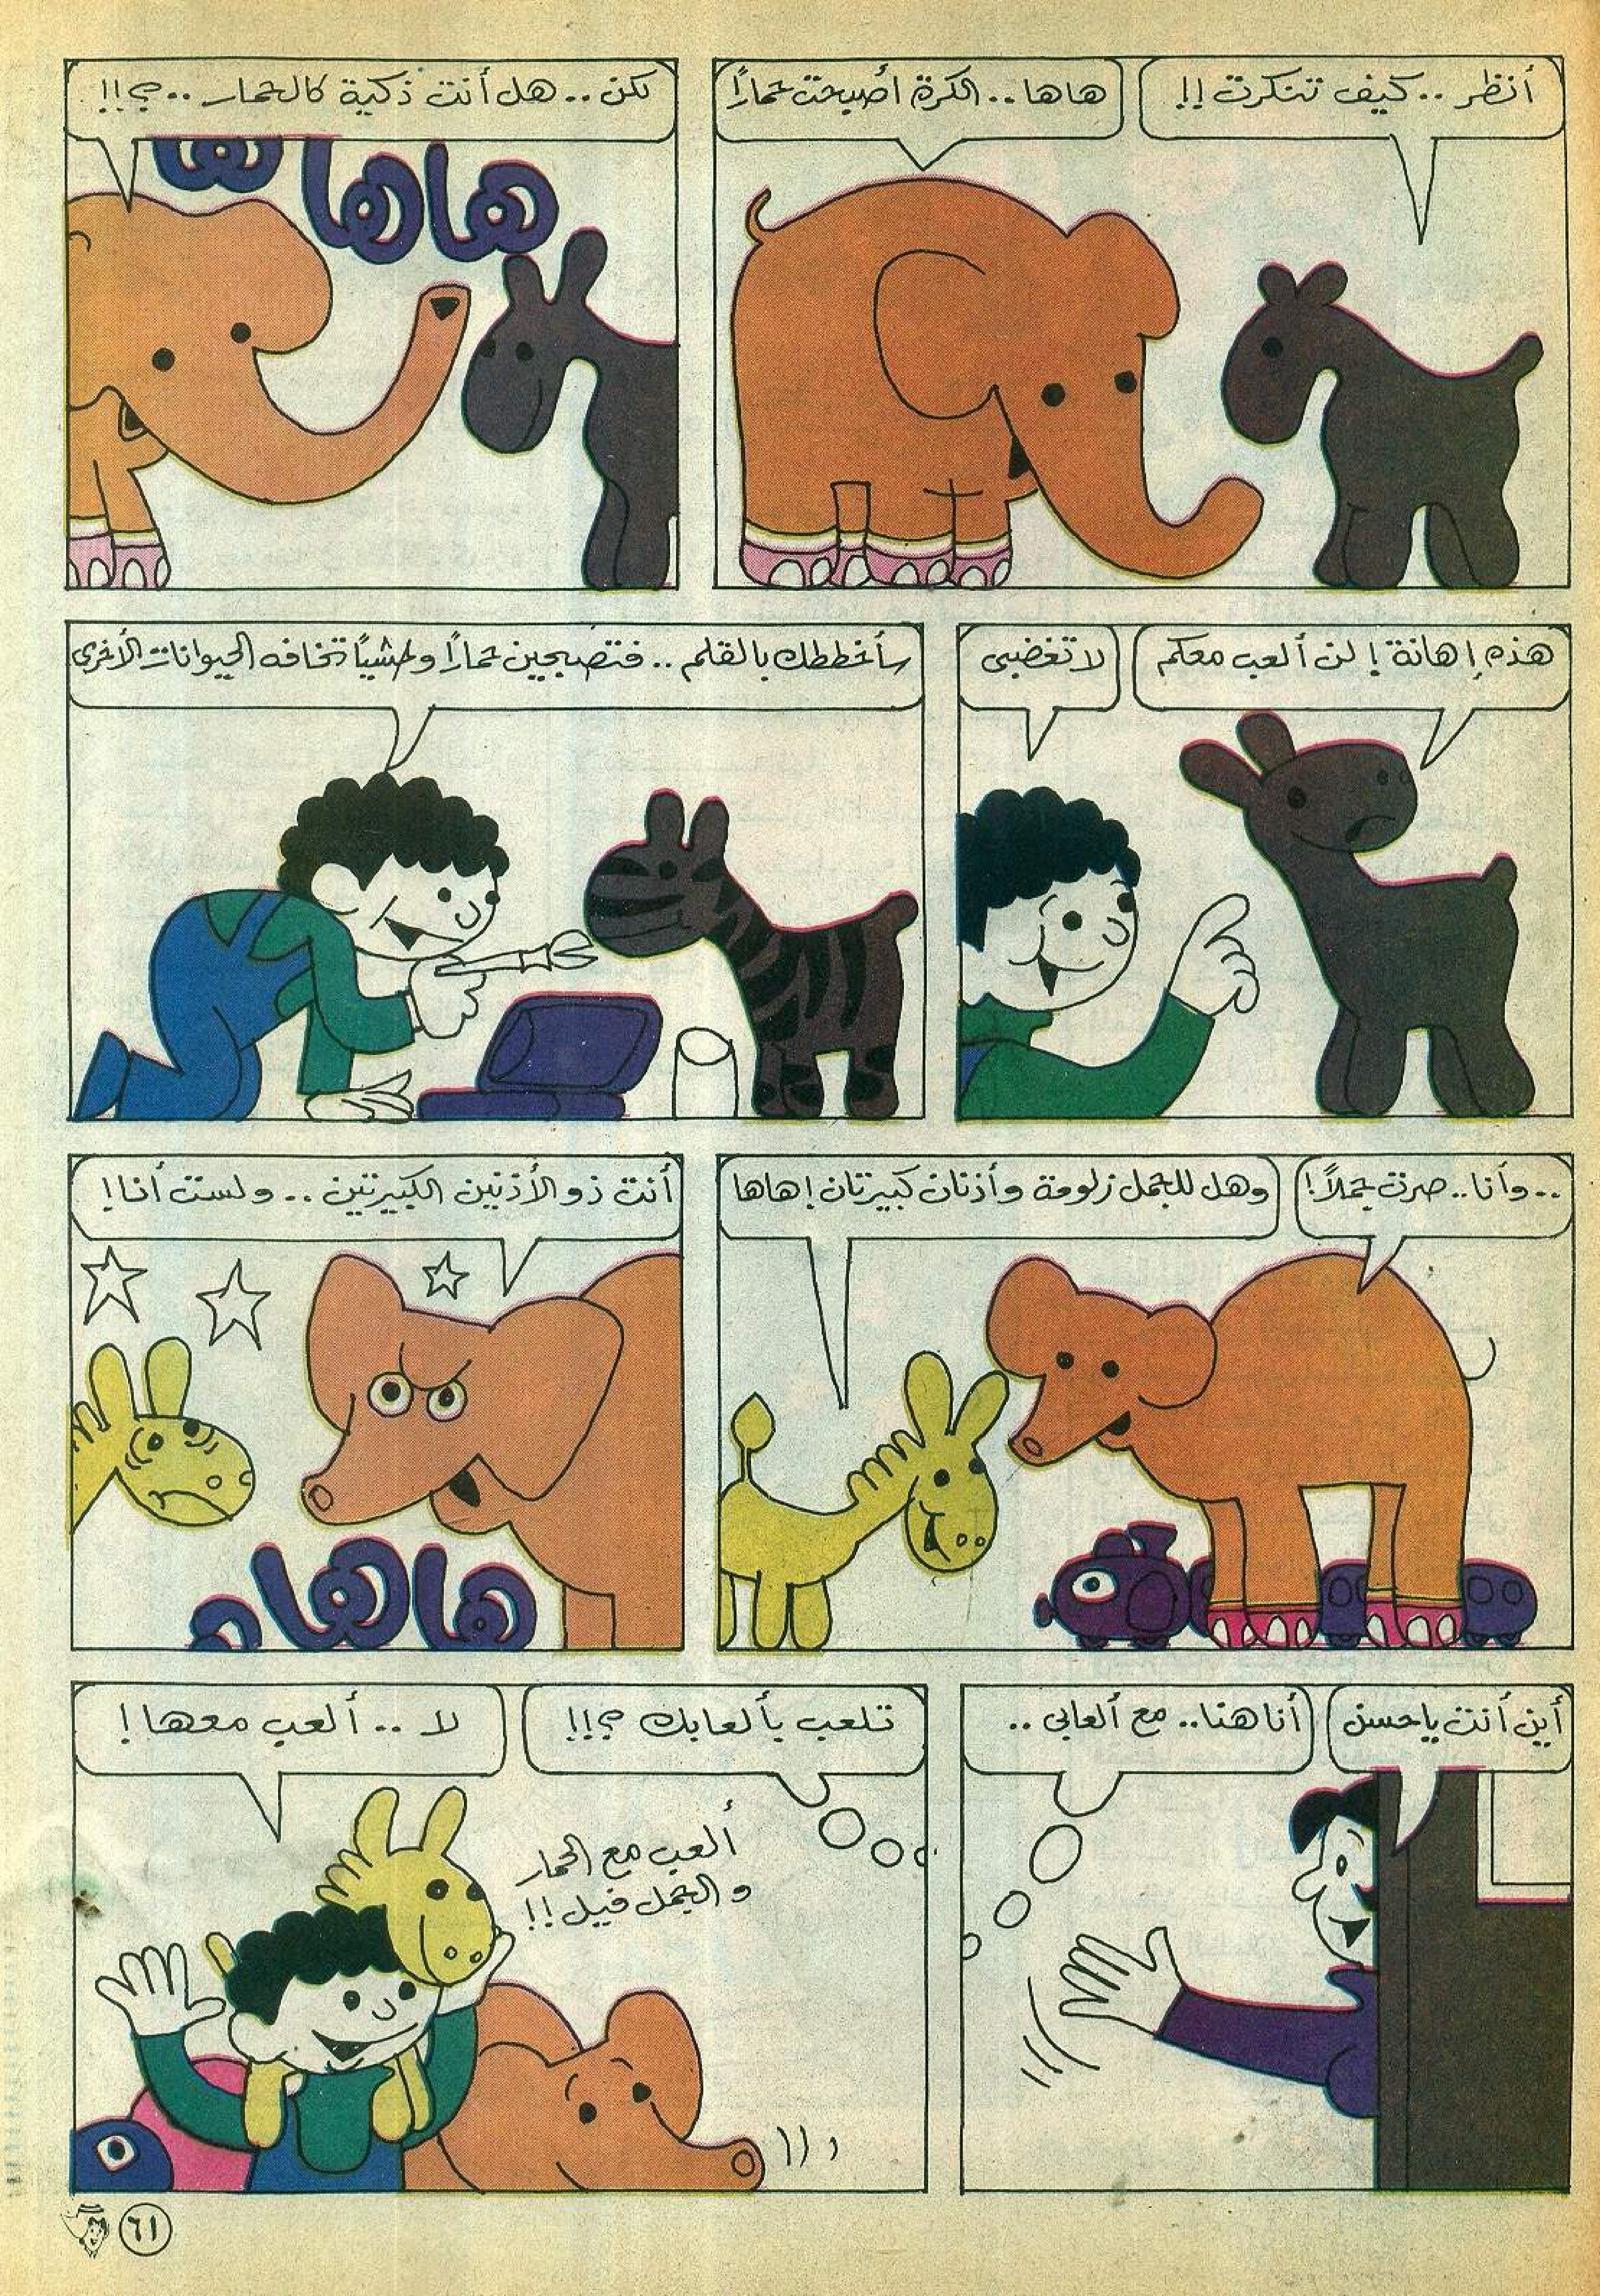 أنظر .. كيف تنكرت !!
هاها .. الكرة أصبحت حمارًا
لكن .. هل أنت ذكية كالحمار .. ؟!!
هاها ها
هذه إهانة ! لن ألعب معكم
لا تغضبي
سأخططك بالقلم .. فتصبحين حمارًا وحشيًا تخافه الحيوانات الأخرى
.. وأنا .. صرت جملاً !
وهل للجمل زلومة وأذنان كبيرتان ! هاها
أنت ذو الأذنين الكبيرتين .. ولست أنا !
هاها ه
أين أنت يا حسن
أنا هنا .. مع ألعابي ..
تلعب بألعابك ؟!!
لا .. ألعب معها !
ألعب مع الحمار
و الجمل فيل !!
٦١